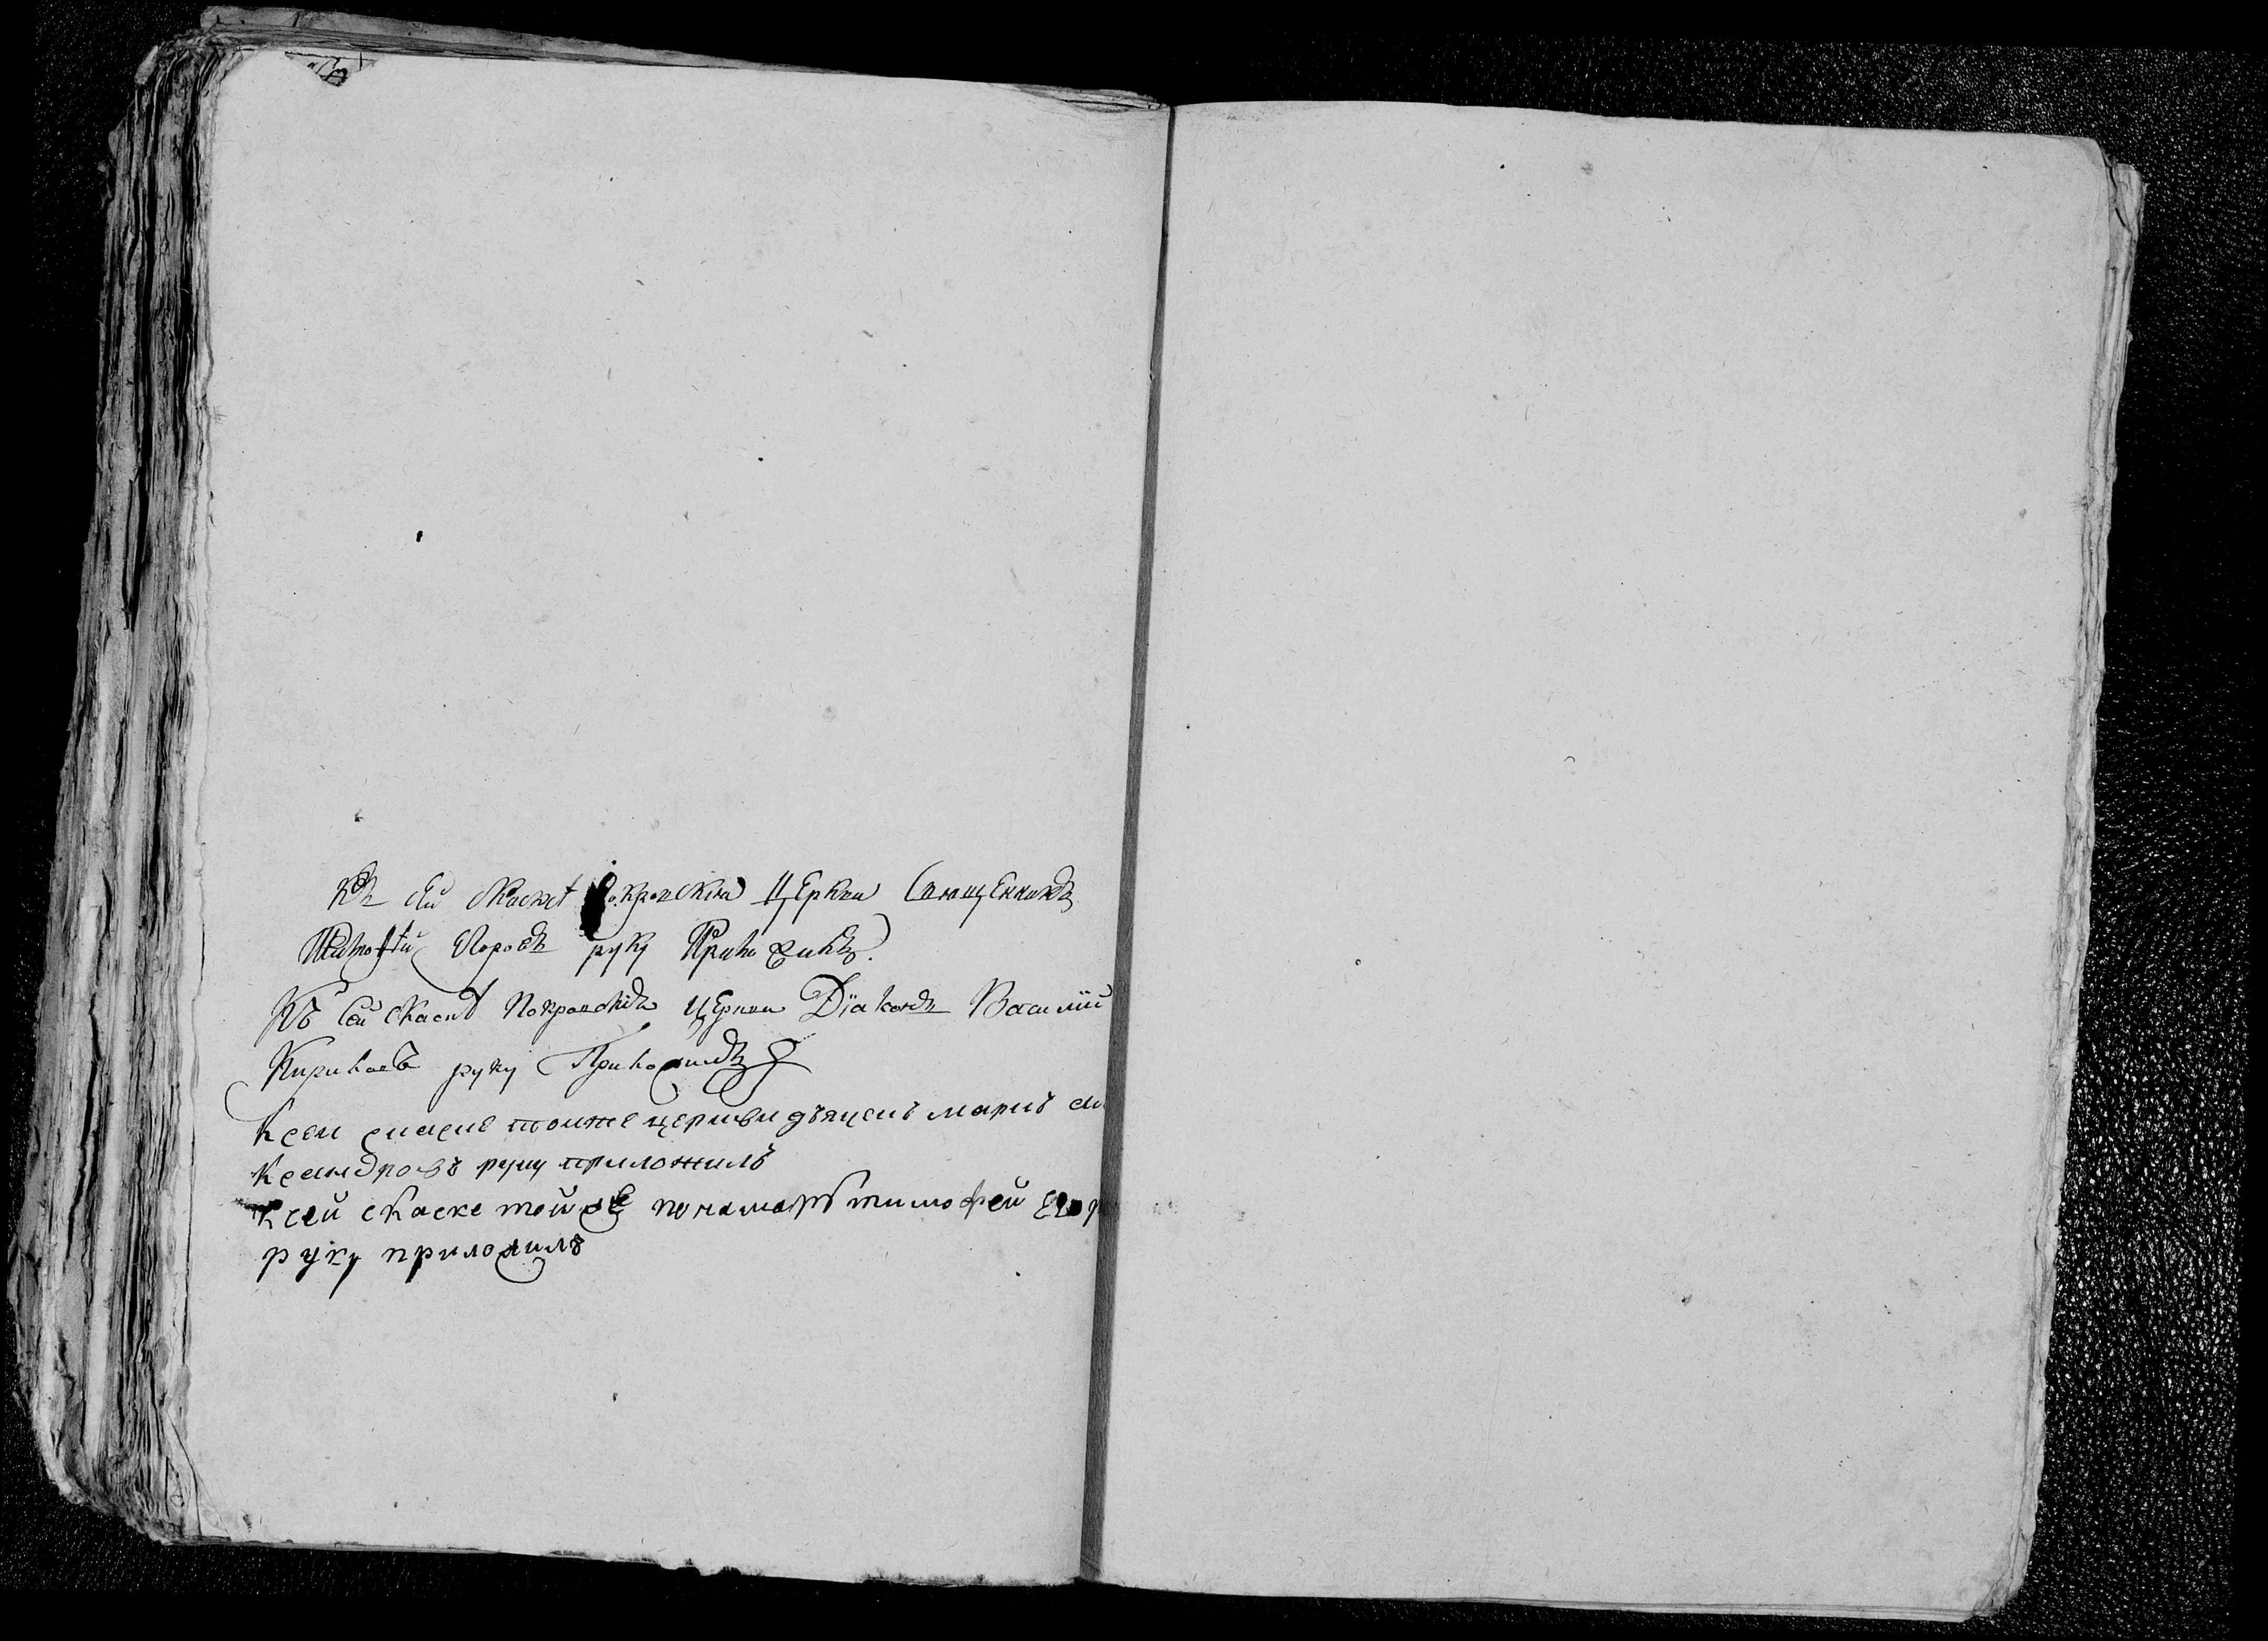 Къ сей скаскѣ Покровскія Церкви Священникъ
Тимофѣй руку Приложилъ.
Къ сей скаскѣ Покровскія Церкви Dїаконъ Василїй
Кириловъ руку Приложилъ
Ксеи скаске тоиже церкви дьячекъ маркъ але
ксандровъ руку приложилъ
ксей скаске тойже понамарь тимофей его
руку приложилъ